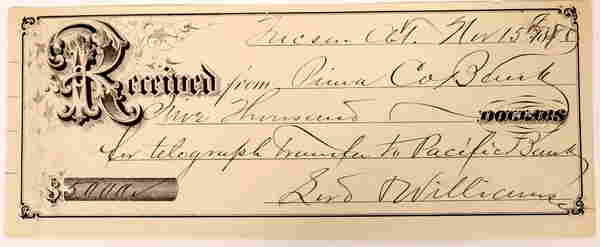 Tucson A.T. Nov 15th 1879
Received from Pima Co Bank
Five Thousand DOLLARS
for telegraph transfer to Pacific Bank
$ 5000/
Lord & Williams